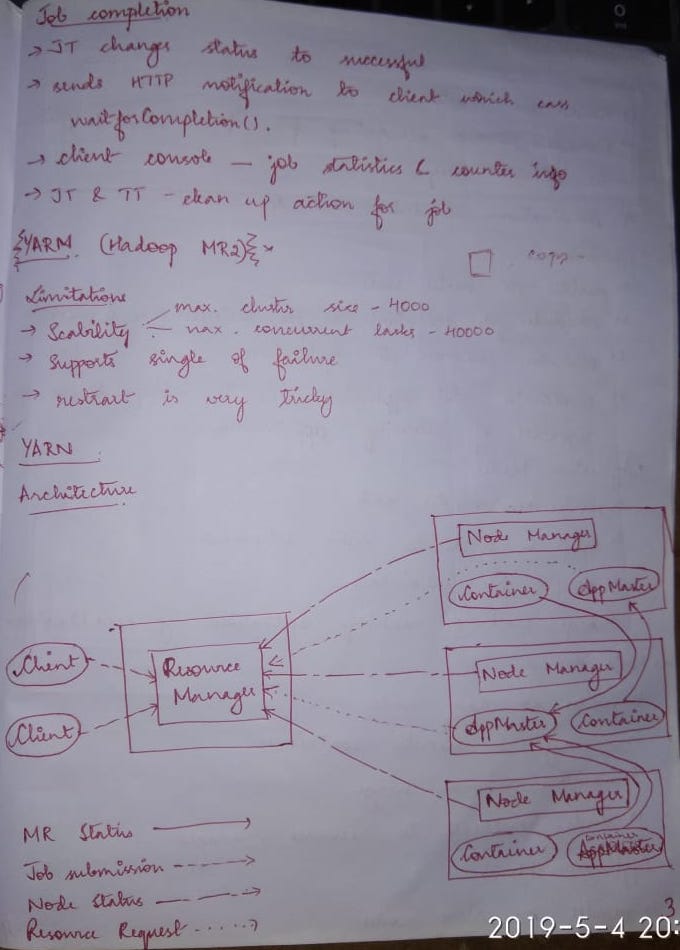 Job completion
→ JT changes status to successful
→ sends HTTP notification to client which cass
waitforCompletion().
→ client console – job statistics & counter info
→ JT & TT – clean up action for job
YARM (Hadoop MR2)
Limitations
max. cluster size - 4000
→ Scability
max. concurrent tasks - 40000
→ Supports single of failure
→ restrart is very tricky
YARN
Architecture
Node Manager
Container AppMaster
Client
Resource Manager
Node Manager
Client
AppMaster Container
Node Manager
MR Status →
Container container
Job submission →
Node Status →
Resource Request →
3
2019-5-4 20: